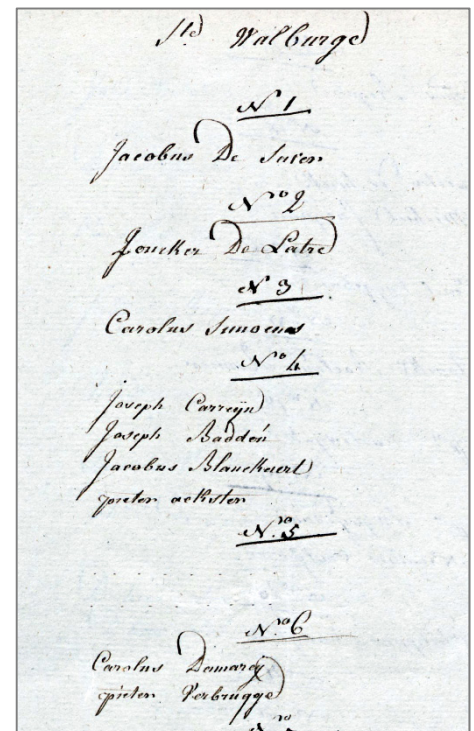 Ste Walburge
N° 1
Jacobus De
N.ro 2
Joncker De Latre
N° 3
Carolus
N° 4
Joseph Carreyn
Joseph Badden
Jacobus Blanckaert
pieter
N.ro 5
N.ro 6
Carolus Damarey
pieter Verbrugge